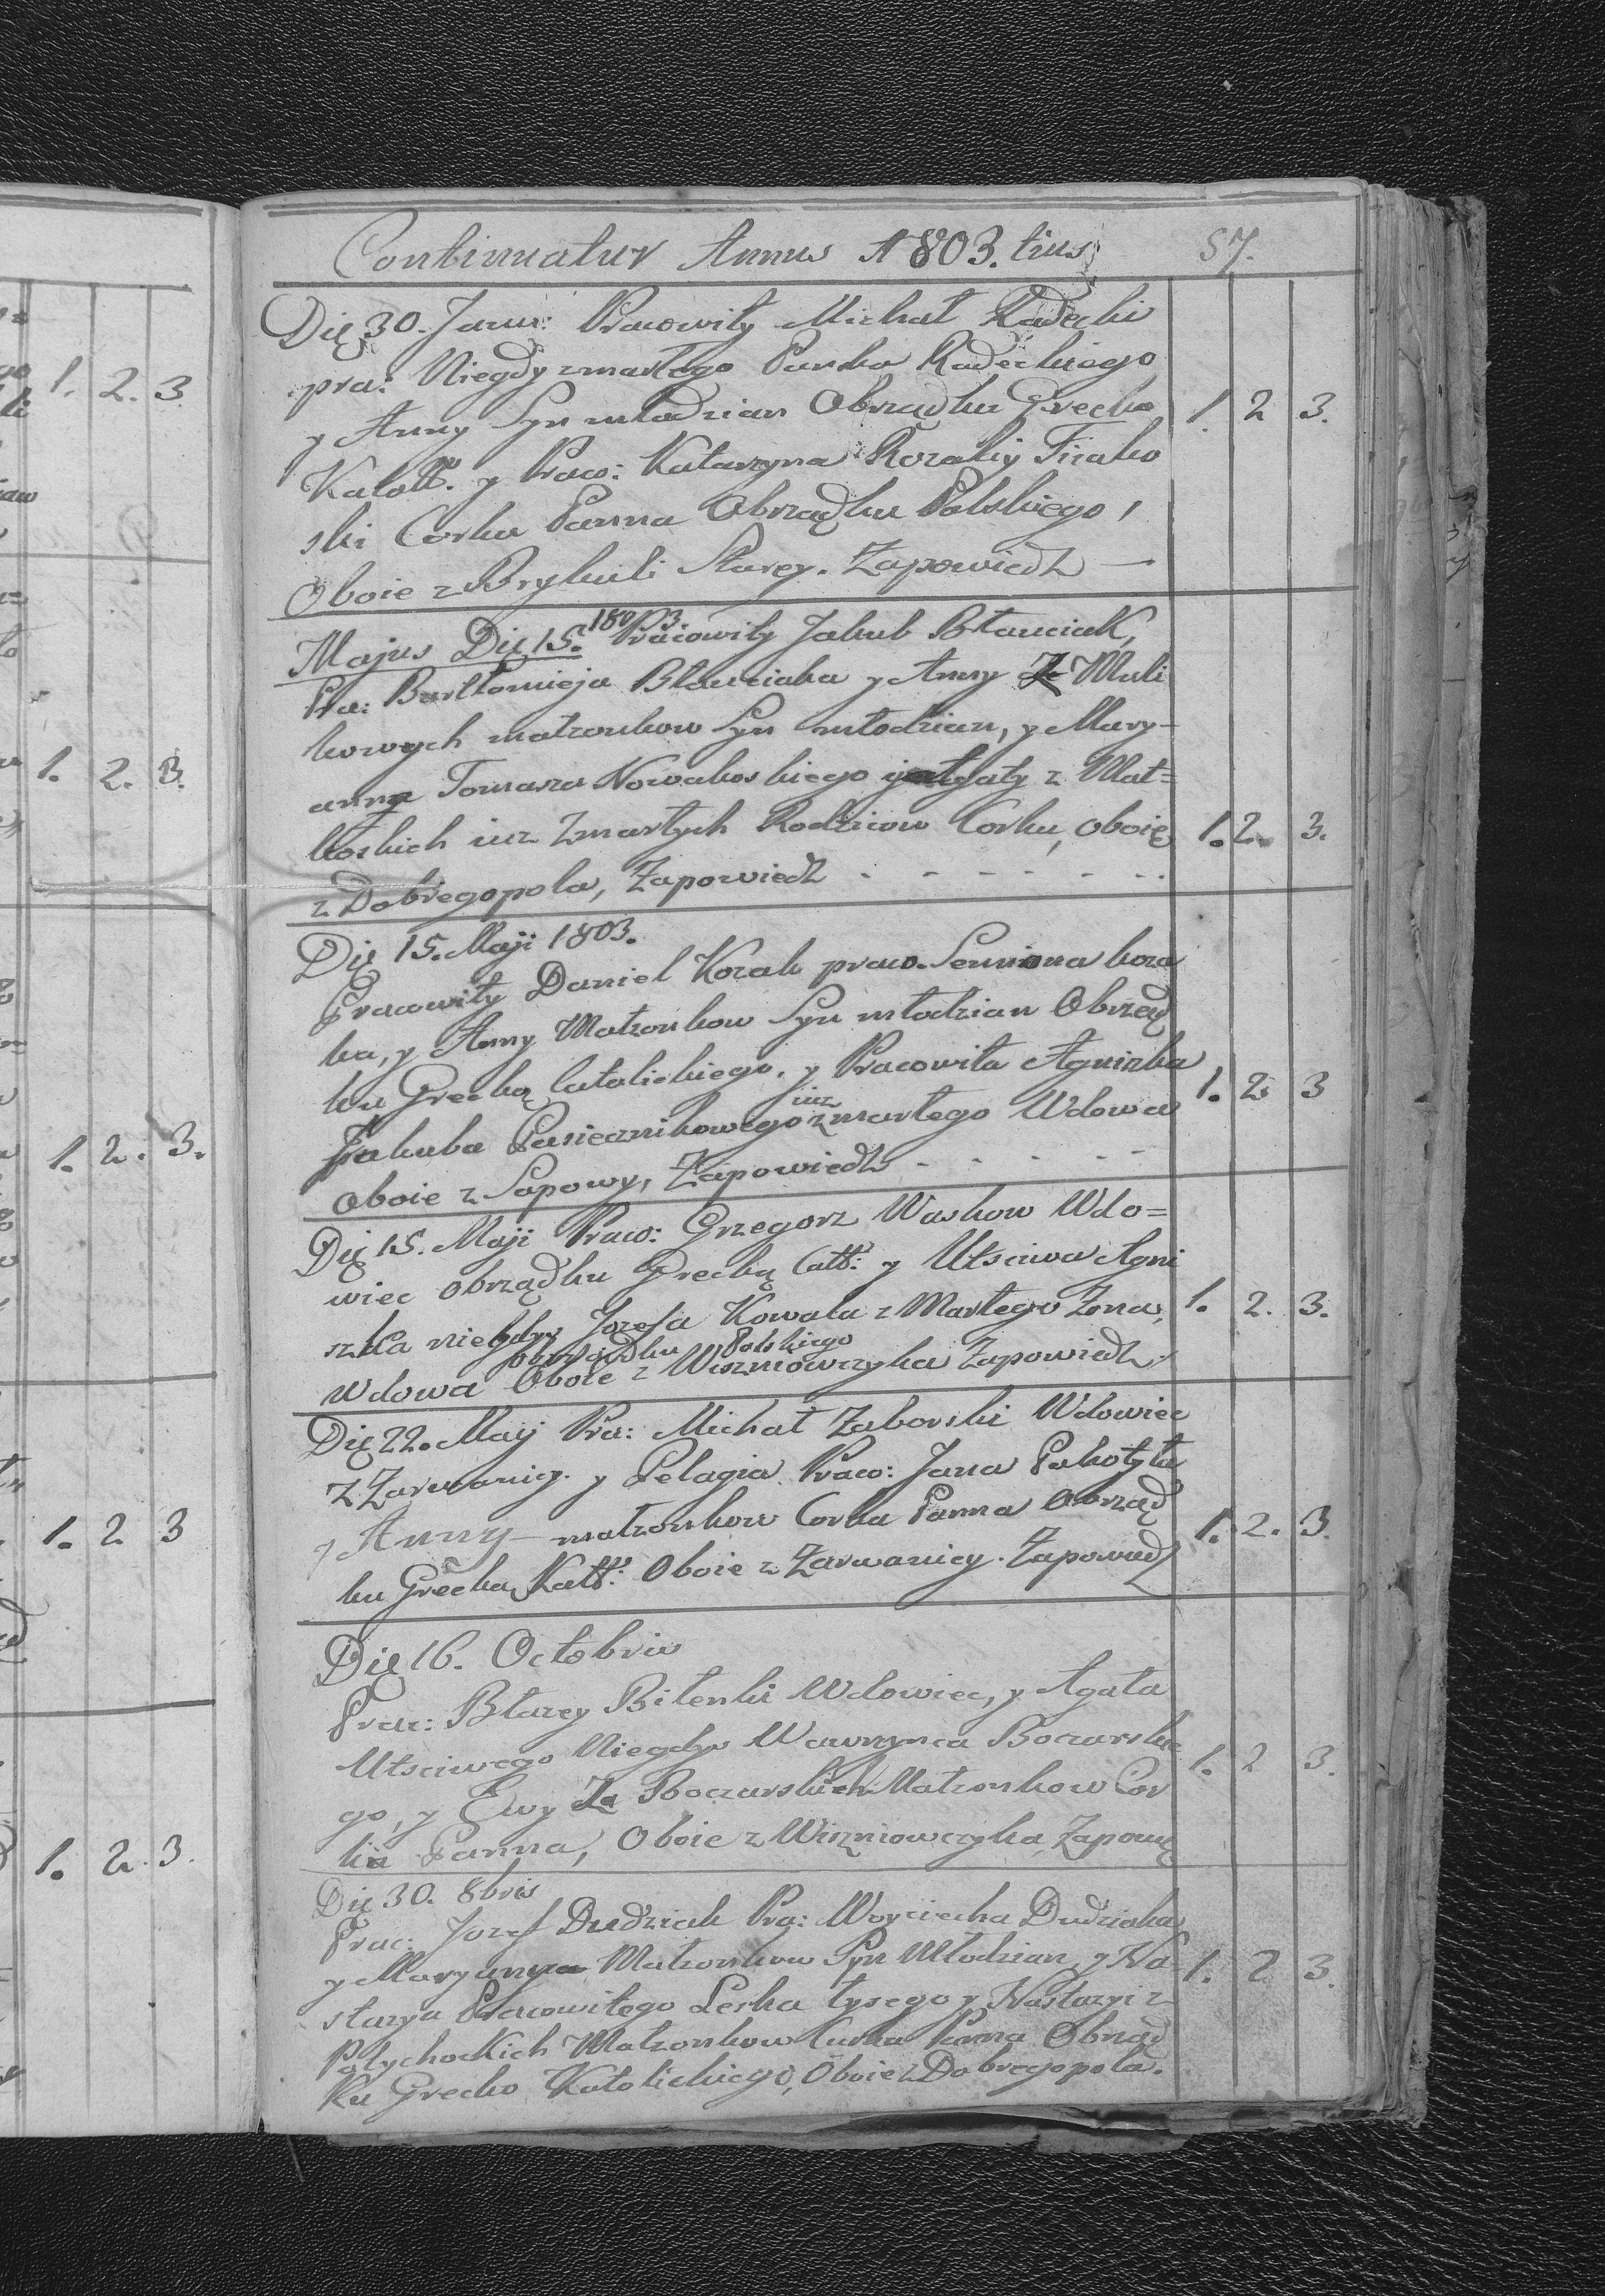 Continuatur Annus 1803. tius
57.
Die 30. Janu: Pracowity Michał Radecki
pra: Niegdy zmarłego Pawła Radeckiego
y Anny Syn młodzian Obrządku Grecko
Katoll. y Praw: Katarzyna Rozalij
ski Corka Panna Obrządku Polskiego,
Oboie z Brykuli Starey. Zapowiedz —
1. 2 3.
Majus Die 15. 1803 Pracowity Jakub Błauciak,
Pra: Bartłomieja Błauciaka y Anny Z Muli
kowych małzonkow Syn młodzian, y Mary-
anna Tomasza Nowakoskiego y Agaty z Mał=
koskich iuz Zmarłych Rodzicow Corka, oboie
z Dobregopola, Zapowiedz - - - - - -
1. 2. 3.
Die 15. Maji 1803.
Pracowity Daniel Kozak praw. Semiona koza
ka, y Anny Małzonkow Syn młodzian Obrząd
ku Grecko Catolickiego. y Pracowita Agniszka
Jakuba Pasiecznikowego iuz zmarłego Wdowa
oboie z Sapowy, Zapowiedz - - - - -
1. 2. 3
Die 15. Maji Praw: Grzegorz Waskow Wdo=
wiec obrządku Grecko Catt: y Utsciwa Agni
szka niegdys Jozefa Kowala z Martego Zona,
obrządku Polskiego
Wdowa Oboie z Wiszniowczyka Zapowiedz.
1. 2. 3.
Die 22. Maij Pra: Michał Zaborski Wdowiec
Z Zarwanicy. y Pelagia Praw: Jana Pakotyła
y Anny małzonkow Corka Panna Obrząd
ku Grecko Katt: Oboie z Zarwanicy. Zapowiedz
1. 2. 3.
Die 16. Octobris
Prac: Błazey Bilenki Wdowiec, y Agata
Utsciwego Niegdys Wawrzynca Boczarskie
go, y Ewy Z Boczarskich Małzonkow Cor
ka Panna, Oboie z Wiszniowczyka, Zapowie
1. 2 3.
Die 30. 8bris
Prac: Jozef Dudziak Pra: Woyciecha Dudziaka
y Maryanny Małzonkow Syn Młodzian, y Na
stazya Pracowitego Leska łysego y Nastazyi z
Połychockich Małzonkow Curka Panna Obrząd
ku Grecko Katolickiego, Oboie z Dobregopola.
1. 2 3.
1. 2. 3
1. 2. 3.
1. 2. 3.
1. 2. 3
1. 2. 3.